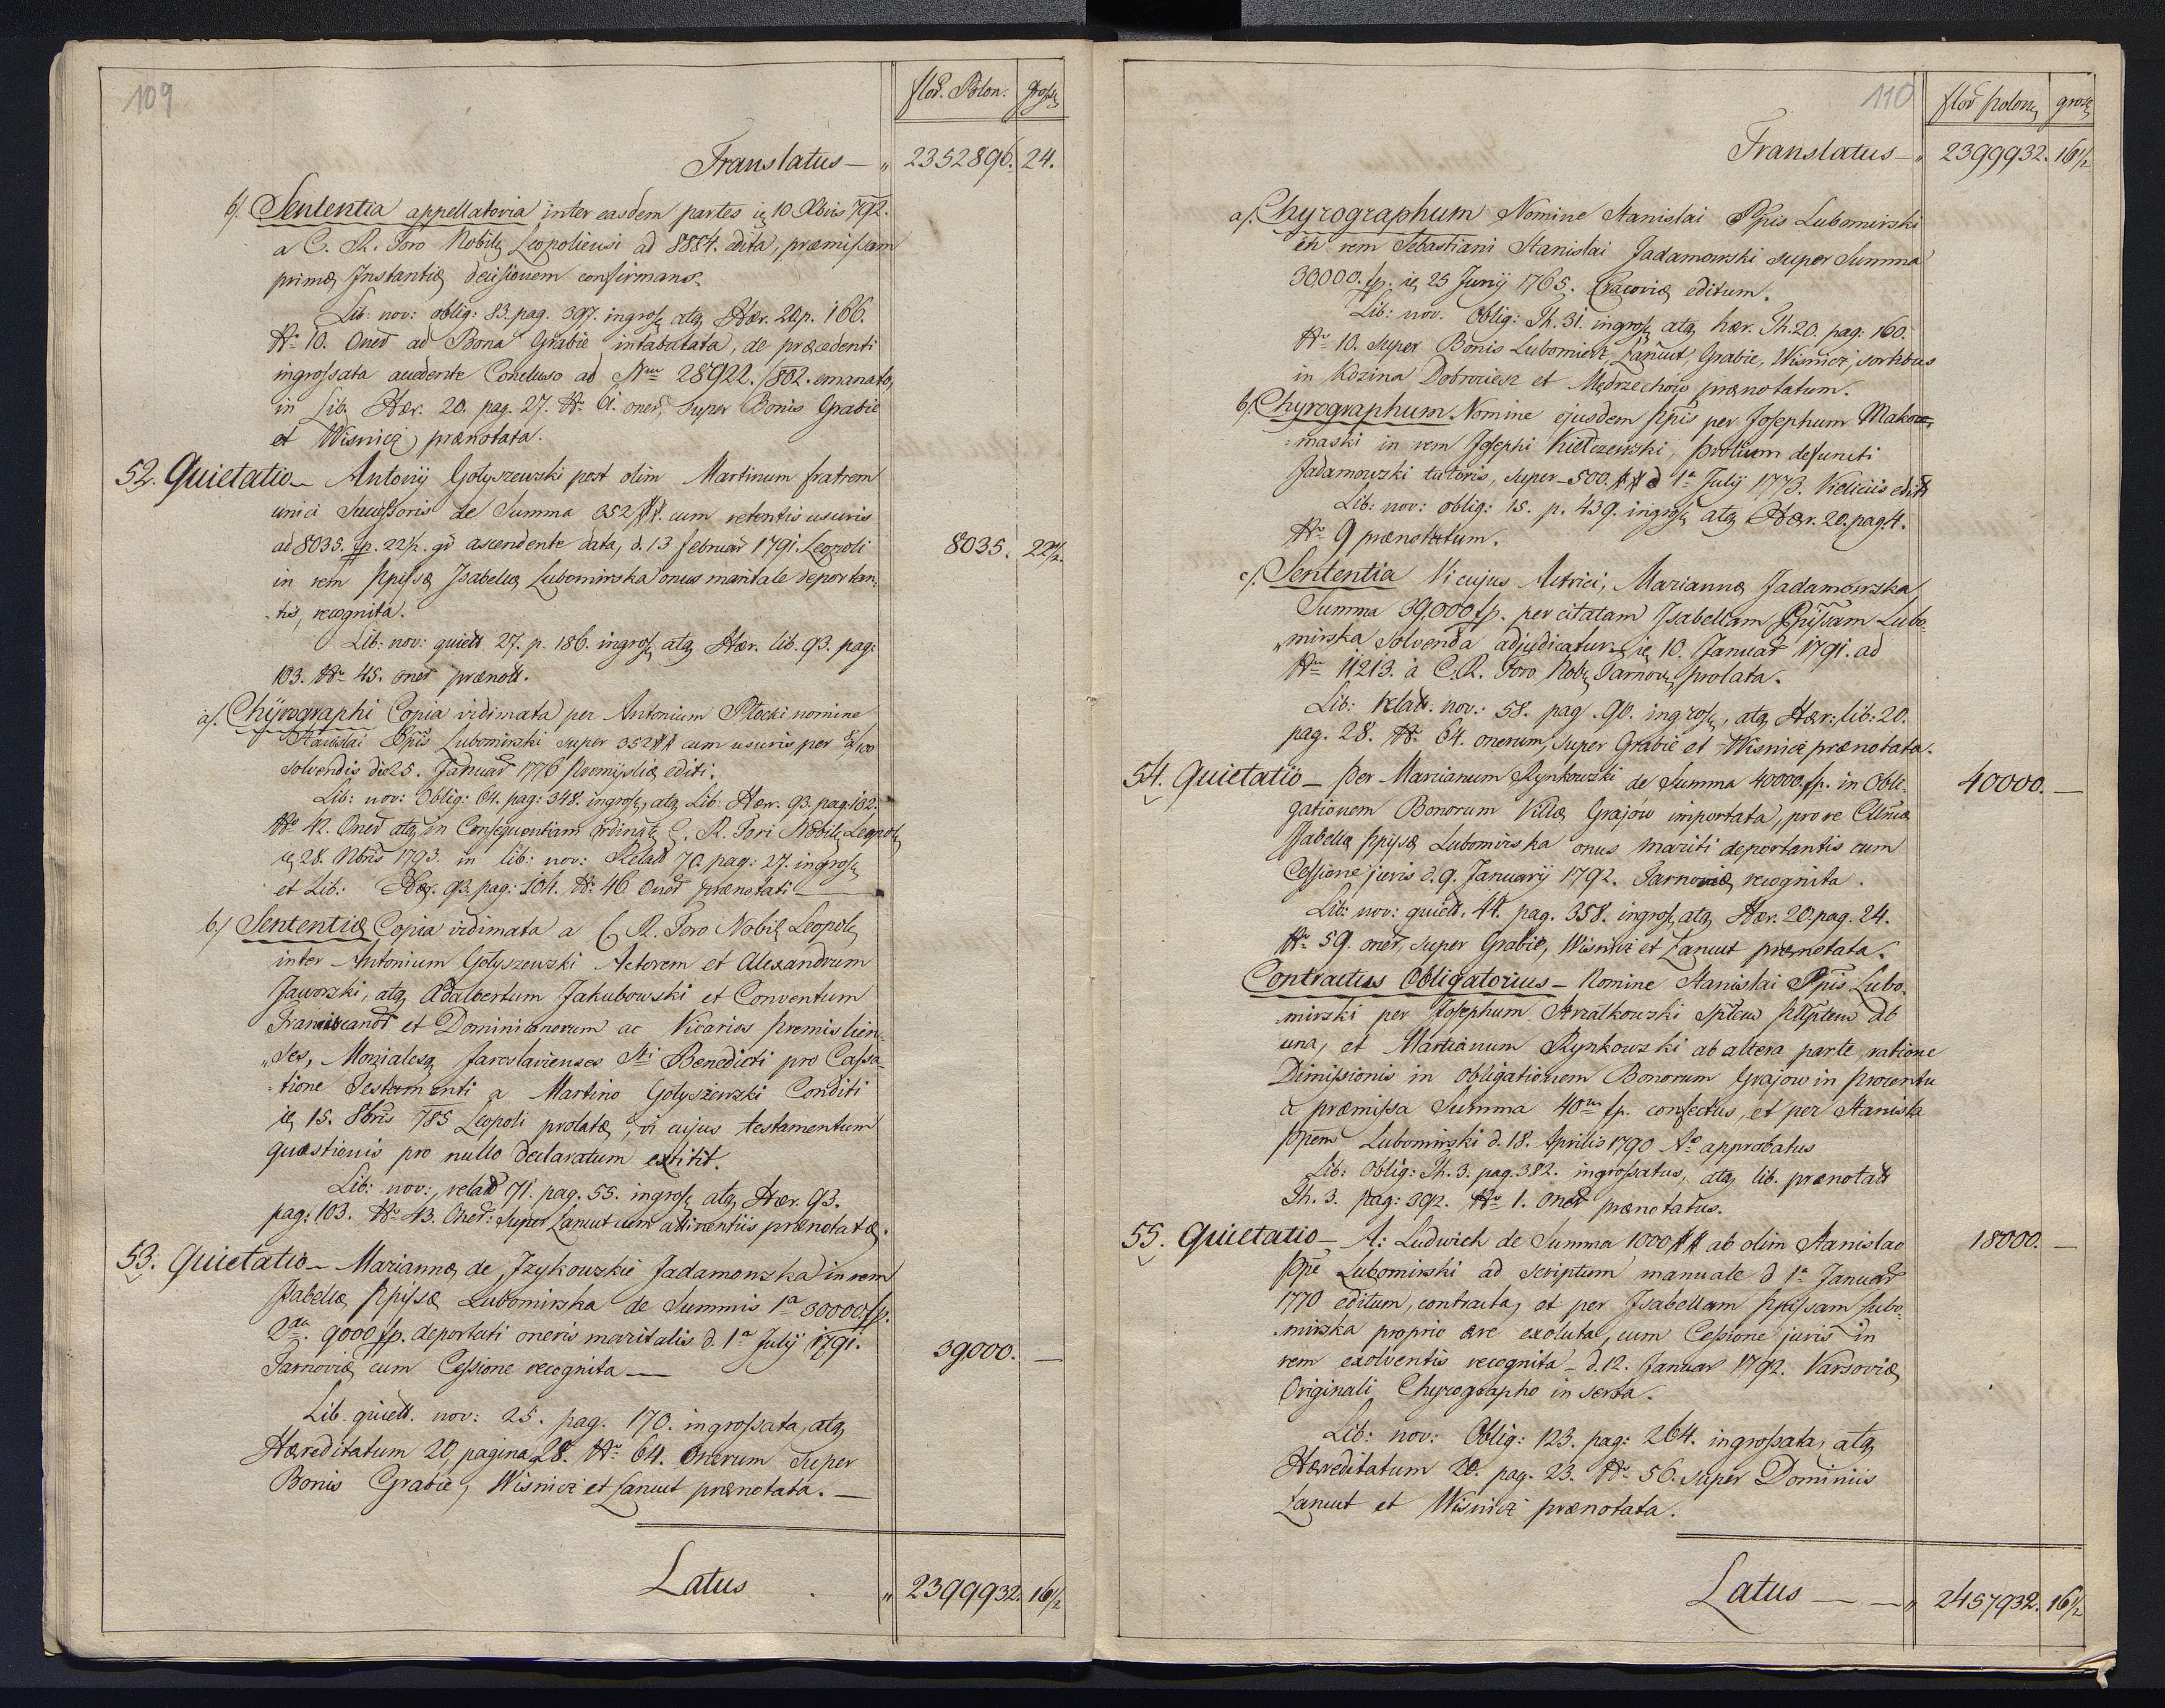 109
flor. Polon. gross
Translatus — „ 2352896. 24.
b/. Sententia appellatoria inter easdem partes 10 Xbris 792.
a C. R. Foro Nobil Leopoliensi ad 8884. edita, præmissam
primæ Instantiæ decisionem confirmans.
Lib: nov: oblig: 83. pag. 397. ingros atq Hær. 20 p. 166.
Nro 10. Oner ad Bona Grabie intabulata, de præcedenti
ingrossata accedente Concluso ad Num 28922. /802. emanato,
in Lib. Hær. 20. pag. 27. N. 61. oner, super Bonis Grabie
et Wisnicz prænotata.
52. Quietatio — Antonij Golyszewski post olim Martinum fratrem
unici Successoris de Summa 352 ##. cum retentis usuris
ad 8035. fp. 22/2. gr ascendente data, d. 13 februar 1791. Leopoli 8035. 22 1/2
in rem Ppissæ Isabellæ Lubomirska onus maritale deportan:
:tis, recognita.
Lib: nov: quiett 27. p. 186. ingros atq Hær. lib. 93. pag:
103. Nro 45. oner prænott.
a/. Chÿrographi Copia vidimata per Antonium Plocki nomine
Stanislai Ppis Lubomirski super 352 ## cum usuris per 8/100
solvendis die 25. Januar 1776 Premisliæ editi.
Lib: nov: Oblig: 64. pag: 348. ingros, atq Lib. Hær. 93. pag: 102.
Nro 42. Oner atq in Consequentiam ordinat C. R. Fori Nobil Leopol
28. Nbris 1793. in lib: nov: Relatt 70. pag: 27. ingros
et Lib: Hær. 93. pag: 104. N: 46. Oner prænotati —
b/ Sententiæ Copia vidimata a C. R. Foro Nobil Leopol
inter Antonium Golyszewski Actorem et Alexandrum
Jaworski, atq Adalbertum Jakubowski et Conventum
Franciscanor et Dominicanorum ac Vicarios Premislien:
„ses, Monialesq Jaroslavienses Sti Benedicti pro Cassa:
:tione Testamenti a Martino Golyszewski Conditi
15. 8bris 785 Leopoli prolatæ, vi cujus testamentum
quæstionis pro nullo declaratum extitit.
Lib: nov: relatt 71. pag. 55. ingros atq Hær. 93.
pag: 103. Nro 43. Oner: super Lancut cum attinentiis prænotatæ.
53. Quietatio — Mariannæ de Jzykowskie Jadamowska in rem
Isabellæ Ppissæ Lubomirska de Summis 1a 30000 fp.
2da. 9000 fp. deportati oneris maritalis d. 1a July 1791. 39000. —
Tarnoviæ cum Cessione recognita —
Lib. quiett. nov: 25. pag. 170. ingrossata, atq
Hæreditatum 20, pagina 28. Nro 64. Onerum super
Bonis Grabie, Wisnicz et Lancut prænotata. —
Latus „ 2399932. 16/2
110
flor polon gros
Translatus — „ 2399932. 16 1/2
a/. Chyrographum Nomine Stanislai Ppis Lubomirski
in rem Sebastiani Stanislai Jadamowski super Summa
30,000. fp. 25 Junij 1765. Cracoviæ editum.
Lib: nov. Oblig: Th. 31. ingros atq hær. Th. 20. pag: 160.
Nro 10. super Bonis Lubomierz, Lancut, Grabie, Wisnicz, sortibus
in Kozina Dobrociesz et Mędrzechów prænotatum.
b/. Chyrographum. Nomine ejusdem Ppis per Josephum Mako
:maski in rem Josephi Kielczewski, prolium defuncti
Jadamowski tutoris, super 500. ## d 1a July 1773. Vieliciis editi
Lib: nov: oblig: 15. p. 439. ingros atq Hær. 20. pag. 4.
Nro 9 prænotatum.
c/. Sententia Vi cujus Actrici, Mariannæ Jadamowska
Summa 39,000 fp. per citatam Isabellam Ppissam Lubo:
„mirska solvenda adjudicatur, 10. Januar 1791. ad
Nm 11213. a C. R. Foro Nob Tarnov prolata.
Lib: relatt. nov: 58. pag. 90. ingros, atq Hær: lib: 20.
pag. 28. Nro 64. onerum, super Grabie et Wisnicz prænotata.
54. Quietatio — per Marcianum Rynkowski de Summa 40000 fp. in Obli: 40000. —
gationem Bonorum Villæ Grajów importata, pro re
Isabellæ Ppissæ Lubomirska onus mariti deportantis cum
Cessione juris d. 9. Januarij 1792. Tarnoviæ recognita.
Lib: nov: quiett. 44. pag. 358. ingros, atq Hær. 20. pag. 24.
Nro 59. oner, super Grabie, Wisnicz et Lancut prænotata.
Contractus Obligatorius — Nomine Stanislai Ppis Lubo:
:mirski per Josephum Strzalkowski ab
una, et Martianum Rynkowski ab altera parte, ratione
Dimissionis in obligationem Bonorum Grajow in procentu
a præmissa Summa 40m fp. confectus, et per Stanisla
Ppem Lubomirski d. 18. Aprilis 1790 approbatus
Lib: Oblig: Th. 3. pag. 382. ingrossatus, atq lib. prænotatt
Th. 3. pag: 392. Nro 1. oner prænotatus.
55. Quietatio — A: Ludwich de Summa 1000 ## ab olim Stanislao 18000. —
Ppe Lubomirski ad scriptum manuale d 1a Januar
1770 editum, contracta, et per Isabellam Ppissam Lubo:
:mirska proprio ære exoluta, cum Cessione juris in
rem exolventis recognita — d. 12. Januar 1792. Varsoviæ
Originali Chyrographo inserta.
Lib: nov: Oblig: 123. pag: 264. ingrossata, atq
Hæreditatum 20. pag. 23. Nro 56. super Dominiis
Lancut et Wisnicz prænotata.
Latus — — „ 2457932. 16 1/2